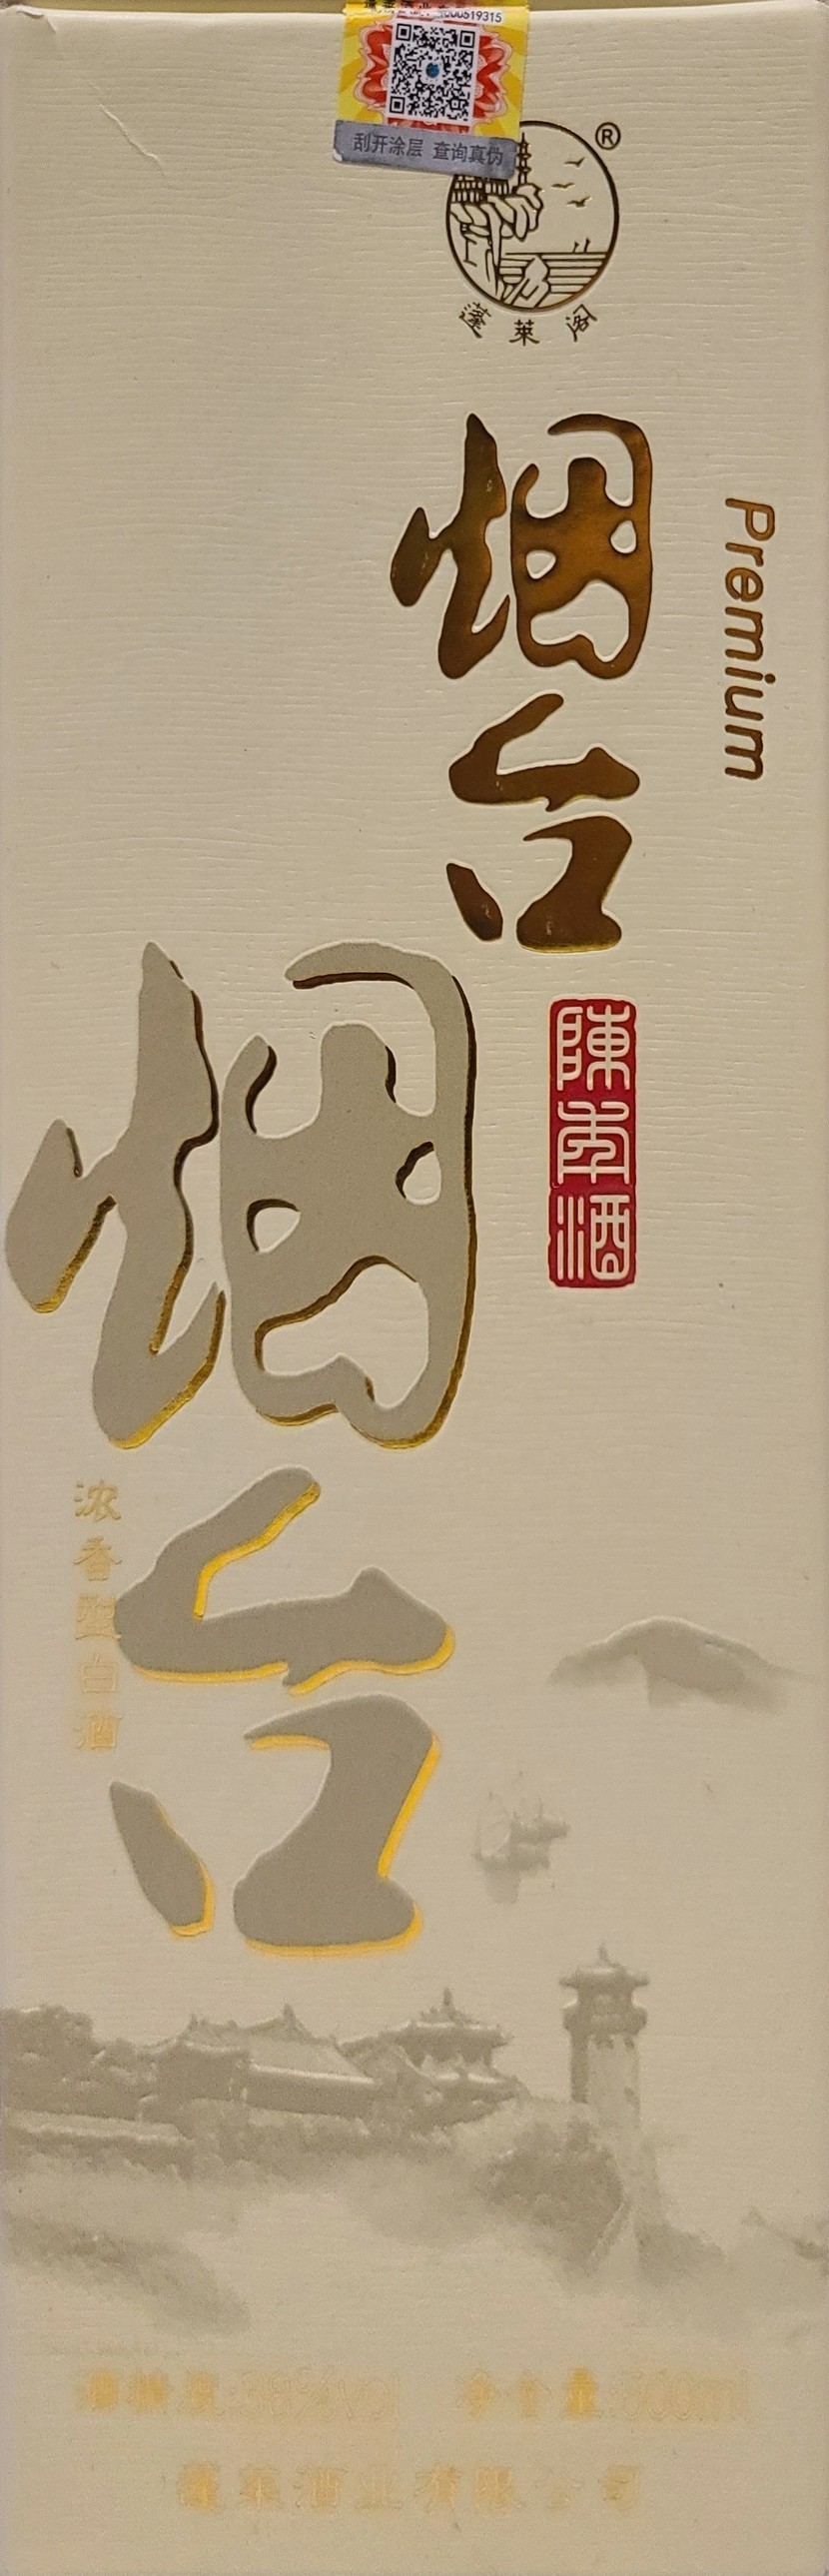 000519315
刮开涂层 查询真伪
®
蓬萊阁
Premium
烟台
陳年酒
烟台
浓香型白酒
蓬莱酒业有限公司